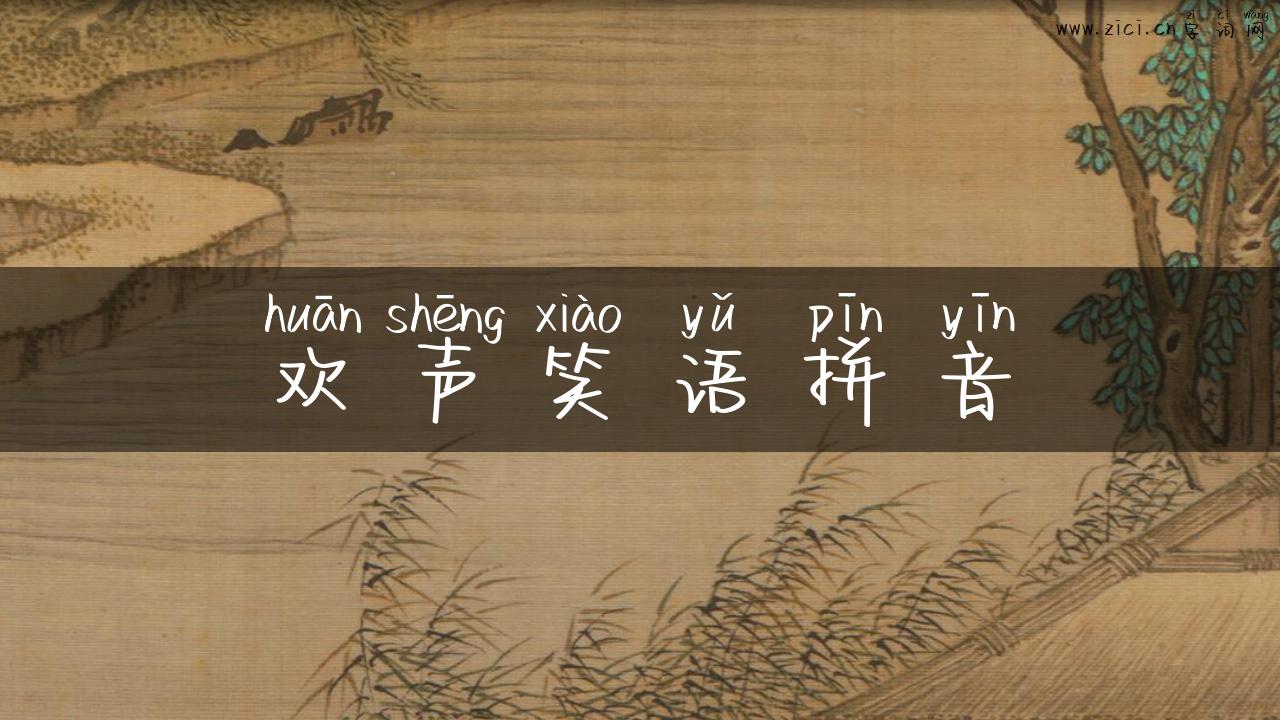 zì cí wǎng
www.zici.cn字词网
huān shēng xiào yǔ pīn yīn
欢声笑语拼音